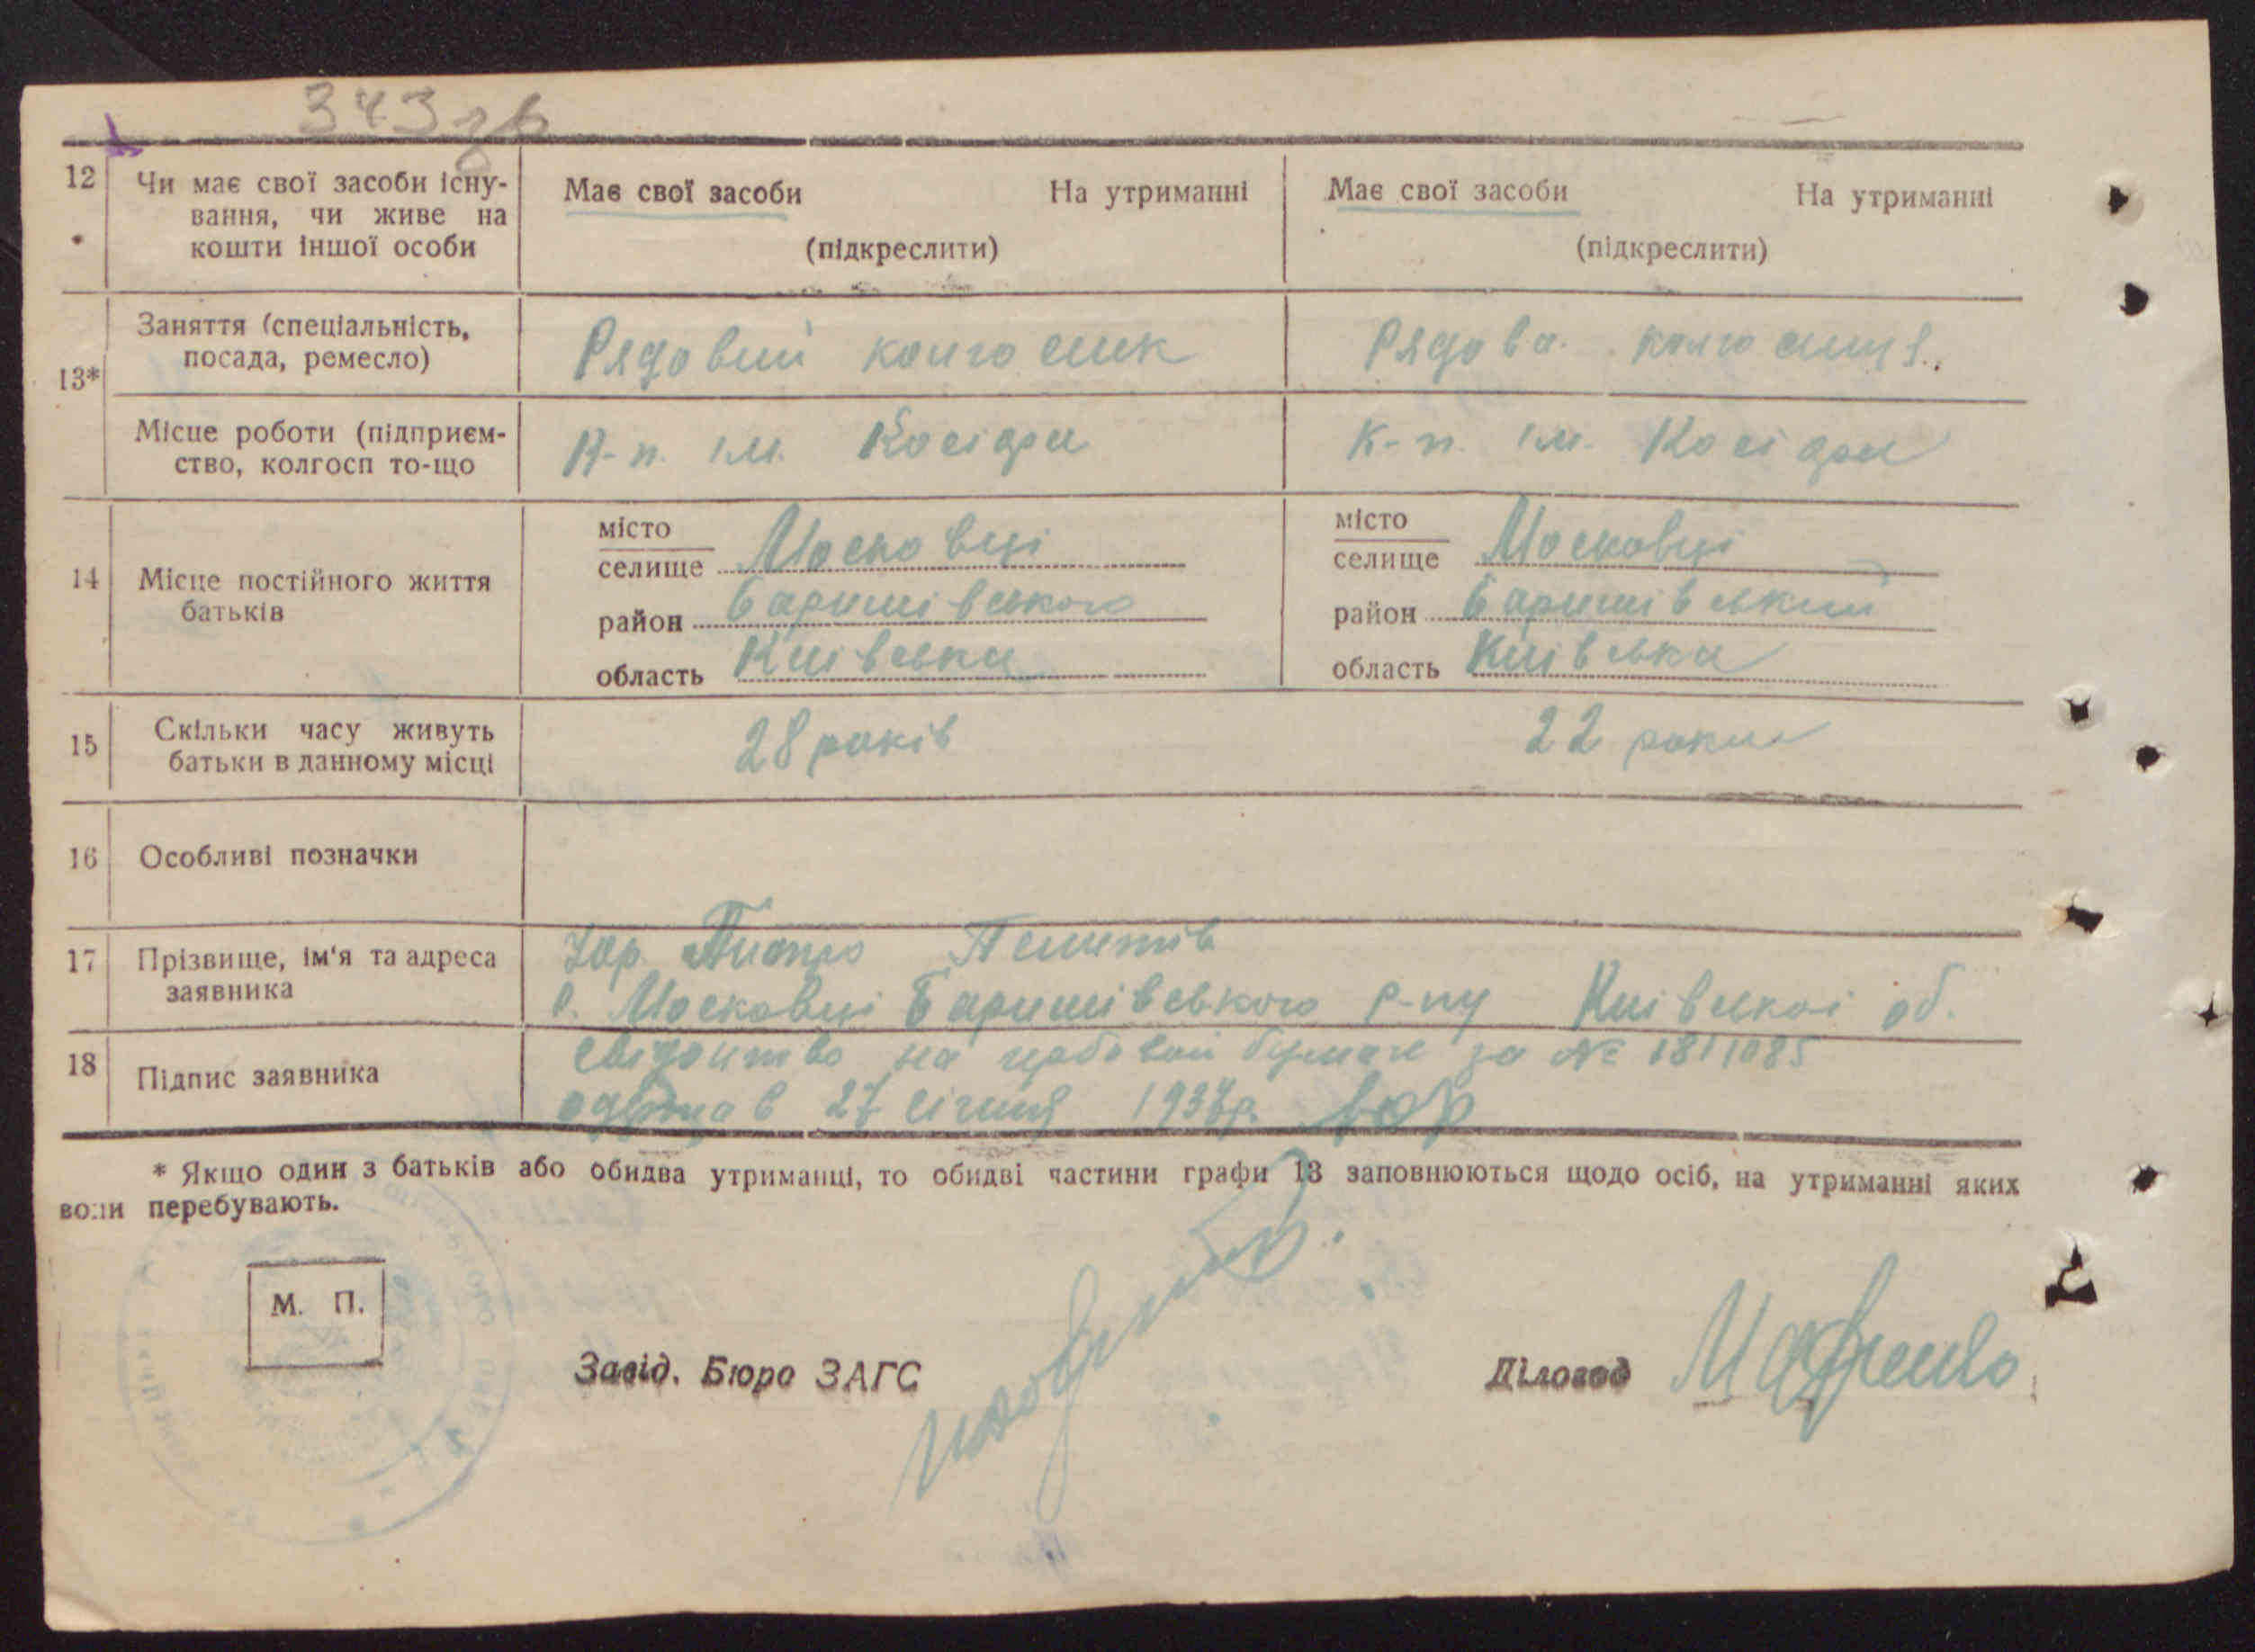 343 зв
12 Чи має свої засоби існу- Має свої засоби На утриманні Має свої засоби На утриманні
вання, чи живе на
кошти іншої особи (підкреслити) (підкреслити)
13* Заняття (спеціальність,
посада, ремесло) Рядовий колгосник Рядова колгосниця
Місце роботи (підприєм-
ство, колгосп то-що К-п. ім. Косіора К-п. ім. Косіора
14 Місце постійного життя
батьків
місто
селище Московці
район Баришівського
область Київська
місто
селище Московці
район Баришівський
область Київська
15 Скільки часу живуть
батьки в данному місці 28 років 22 роки
16 Особливі позначки
17 Прізвище, ім'я та адреса
заявника
с. Московці Баришівського р-ну Київської об.
18 Підпис заявника
свідоцтво на гербовій бумазі за № 1811085
одержав 27 січня 1937р.
* Якщо один з батьків або обидва утриманці, то обидві частини графи 13 заповнюються щодо осіб, на утриманні яких
вони перебувають.
М. П.
Завід. Бюро ЗАГС Діловод